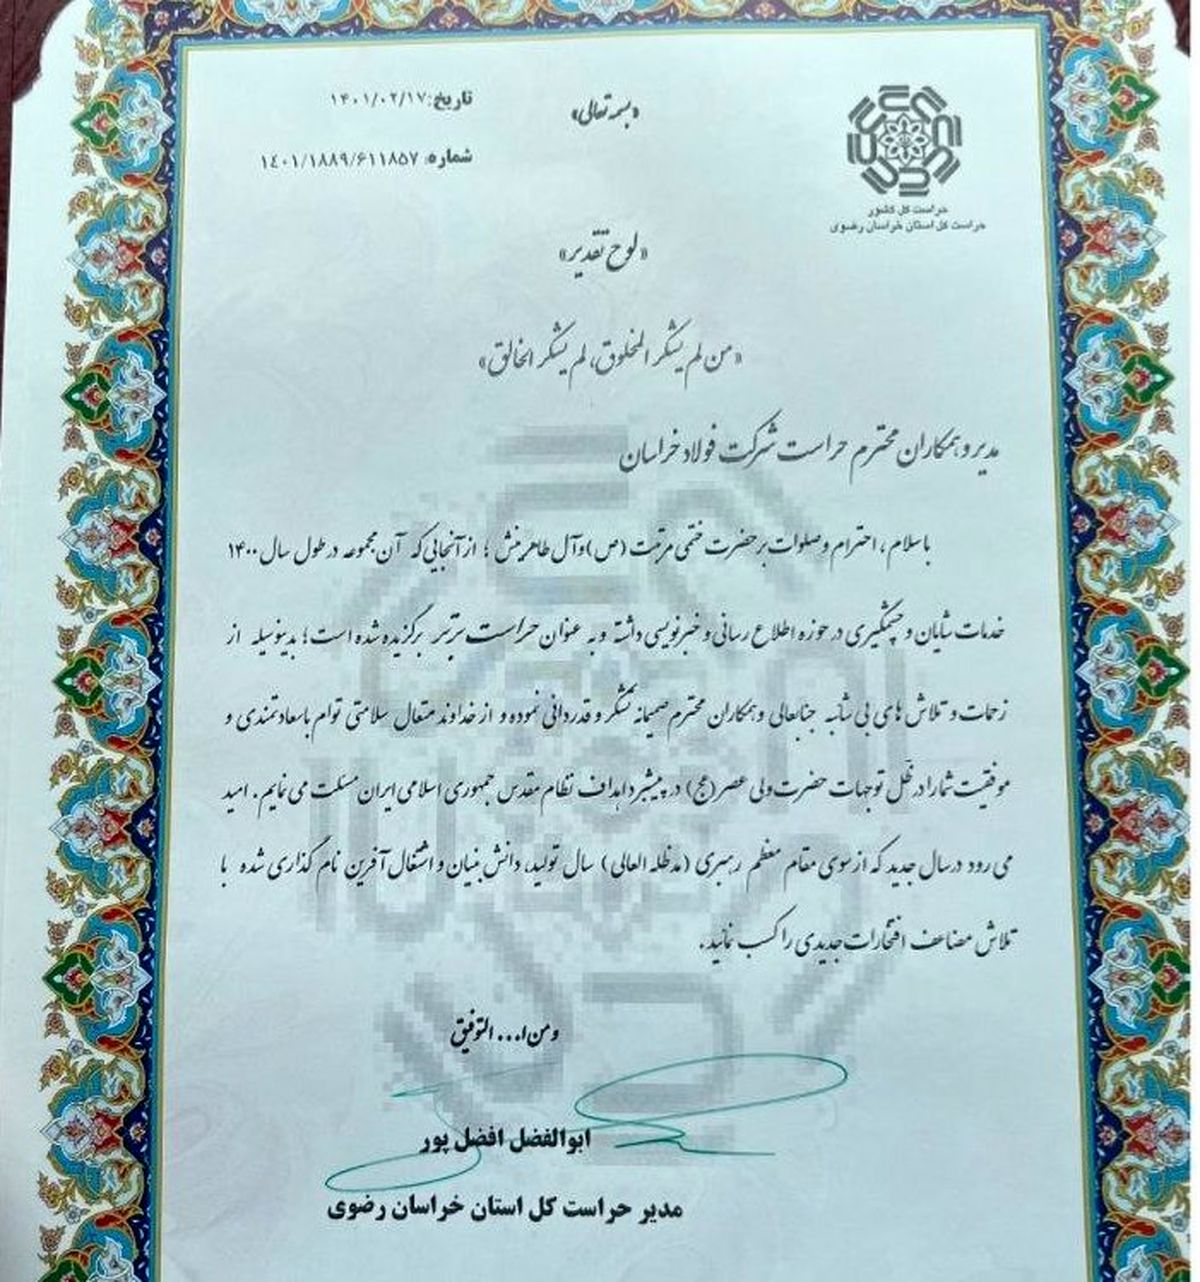 «بسمه تعالی»
تاریخ: ۱۴۰۱/۰۲/۱۷
شماره: ۱٤۰۱/۱۸۸۹/۶۱۱۸۵۷
حراست کل کشور
حراست کل استان خراسان رضوی
«لوح تقدیر»
«من لم یشکر المخلوق، لم یشکر الخالق»
مدیر و همکاران محترم حراست شرکت فولاد خراسان
با سلام ، احترام و صلوات بر حضرت ختمی مرتبت (ص) و آل طاهرینش ؛ از آنجایی که آن مجموعه در طول سال ۱۴۰۰
خدمات شایان و چشمگیری در حوزه اطلاع رسانی و خبرنویسی داشته و به عنوان حراست برتر برگزیده شده است؛ بدینوسیله از
زحمات و تلاش های بی شائبه جنابعالی و همکاران محترم صمیمانه تشکر و قدردانی نموده و از خداوند متعال سلامتی توام با سعادتمندی و
موفقیت شما را در ظل توجهات حضرت ولی عصر (عج) در پیشبرد اهداف نظام مقدس جمهوری اسلامی ایران مسئلت می نمایم. امید
می رود در سال جدید که از سوی مقام معظم رهبری (مدظله العالی) سال تولید، دانش بنیان و اشتغال آفرین نام گذاری شده با
تلاش مضاعف افتخارات جدیدی را کسب نمائید.
و من ا... التوفیق
ابوالفضل افضل پور
مدیر حراست کل استان خراسان رضوی